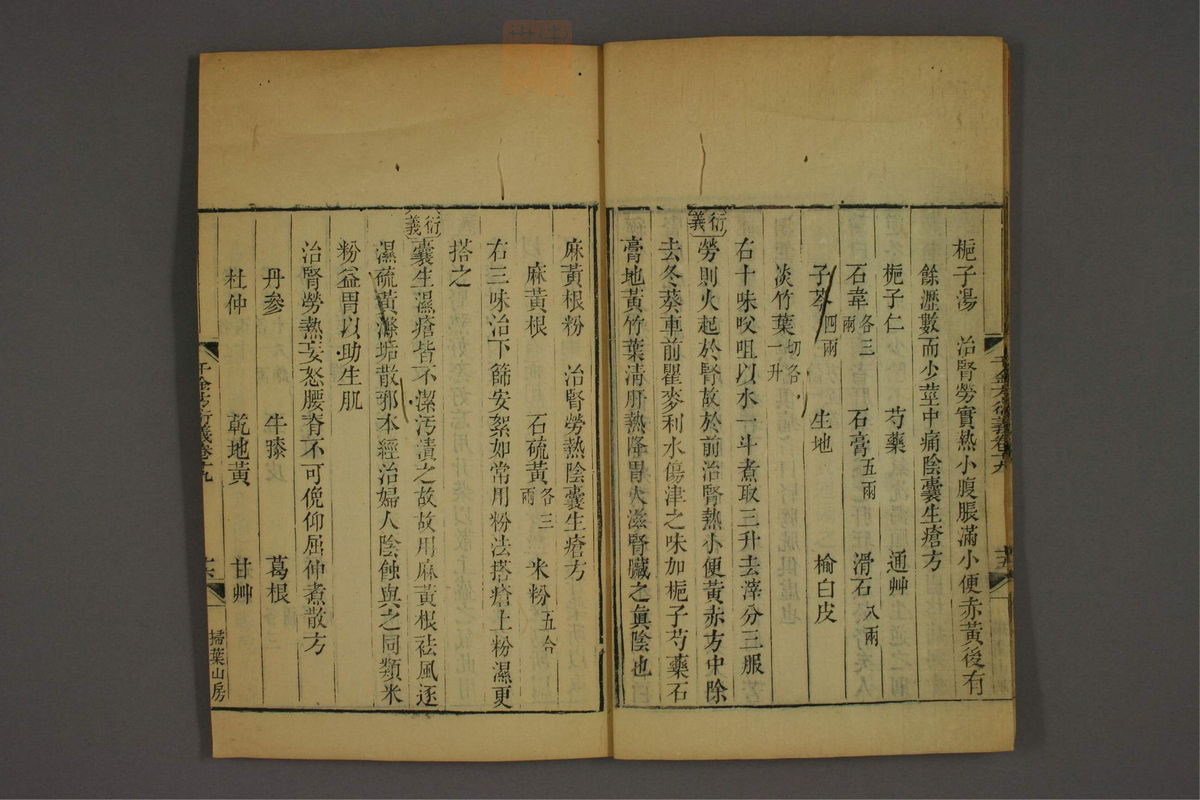 梔子湯　治腎勞實熱小腹脹滿小便赤黃後有
餘瀝數而少莖中痛陰囊生瘡方
梔子仁　芍藥　通艸
石韋各三兩　石膏五兩　滑石八兩
子芩四兩　生地　榆白皮
淡竹葉切各一升
右十味㕮咀以水一斗煮取三升去滓分三服
衍義
勞則火起於腎故於前治腎熱小便黃赤方中除
去冬葵車前瞿麥利水傷津之味加梔子芍藥石
膏地黃竹葉清肝熱降胃火滋腎臟之眞陰也
千金方衍義卷十九
十五
麻黃根粉　治腎勞熱陰囊生瘡方
麻黃根　石硫黃各三兩　米粉五合
右三味治下篩安絮如常用粉法搭瘡上粉濕更
搭之
衍義
囊生濕瘡皆不潔汚漬之故故用麻黃根祛風逐
濕硫黃滌垢散邪本經治婦人陰蝕與之同類米
粉益胃以助生肌
治腎勞熱妄怒腰脊不可俛仰屈伸煮散方
丹參　牛膝　葛根
杜仲　乾地黃　甘艸
千金方衍義卷十九
十六
掃葉山房